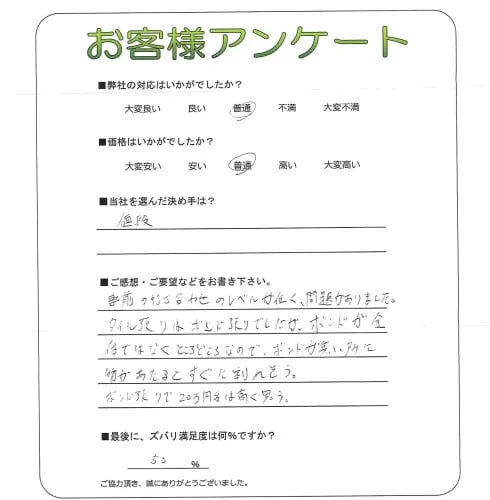 お客様アンケート
■弊社の対応はいかがでしたか？
大変良い 良い 普通 不満 大変不満
■価格はいかがでしたか？
大変安い 安い 普通 高い 大変高い
■当社を選んだ決め手は？
値段
■ご感想・ご要望などをお書き下さい。
事前の打ち合わせのレベルが低く、問題がありました。
タイル張りはボンド張りでしたが、ボンドが全
体ではなくところどころなので、ボンドが無い所に
物があたるとすぐに割れそう。
ボンド張りで20万円台は高く思う。
■最後に、ズバリ満足度は何％ですか？
50 ％
ご協力頂き、誠にありがとうございました。